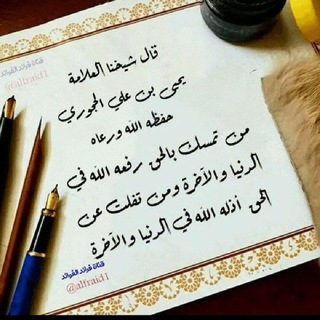 قناة فرائد الفوائد
@alfraid1
قال شيخنا العلامة
يحيى بن علي الحجوري
حفظه الله ورعاه
من تمسك بالحق رفعه الله في
الدنيا والآخرة ومن تفلت عن
الحق أذله الله في الدنيا والآخرة
قناة فرائد الفوائد
@alfraid1